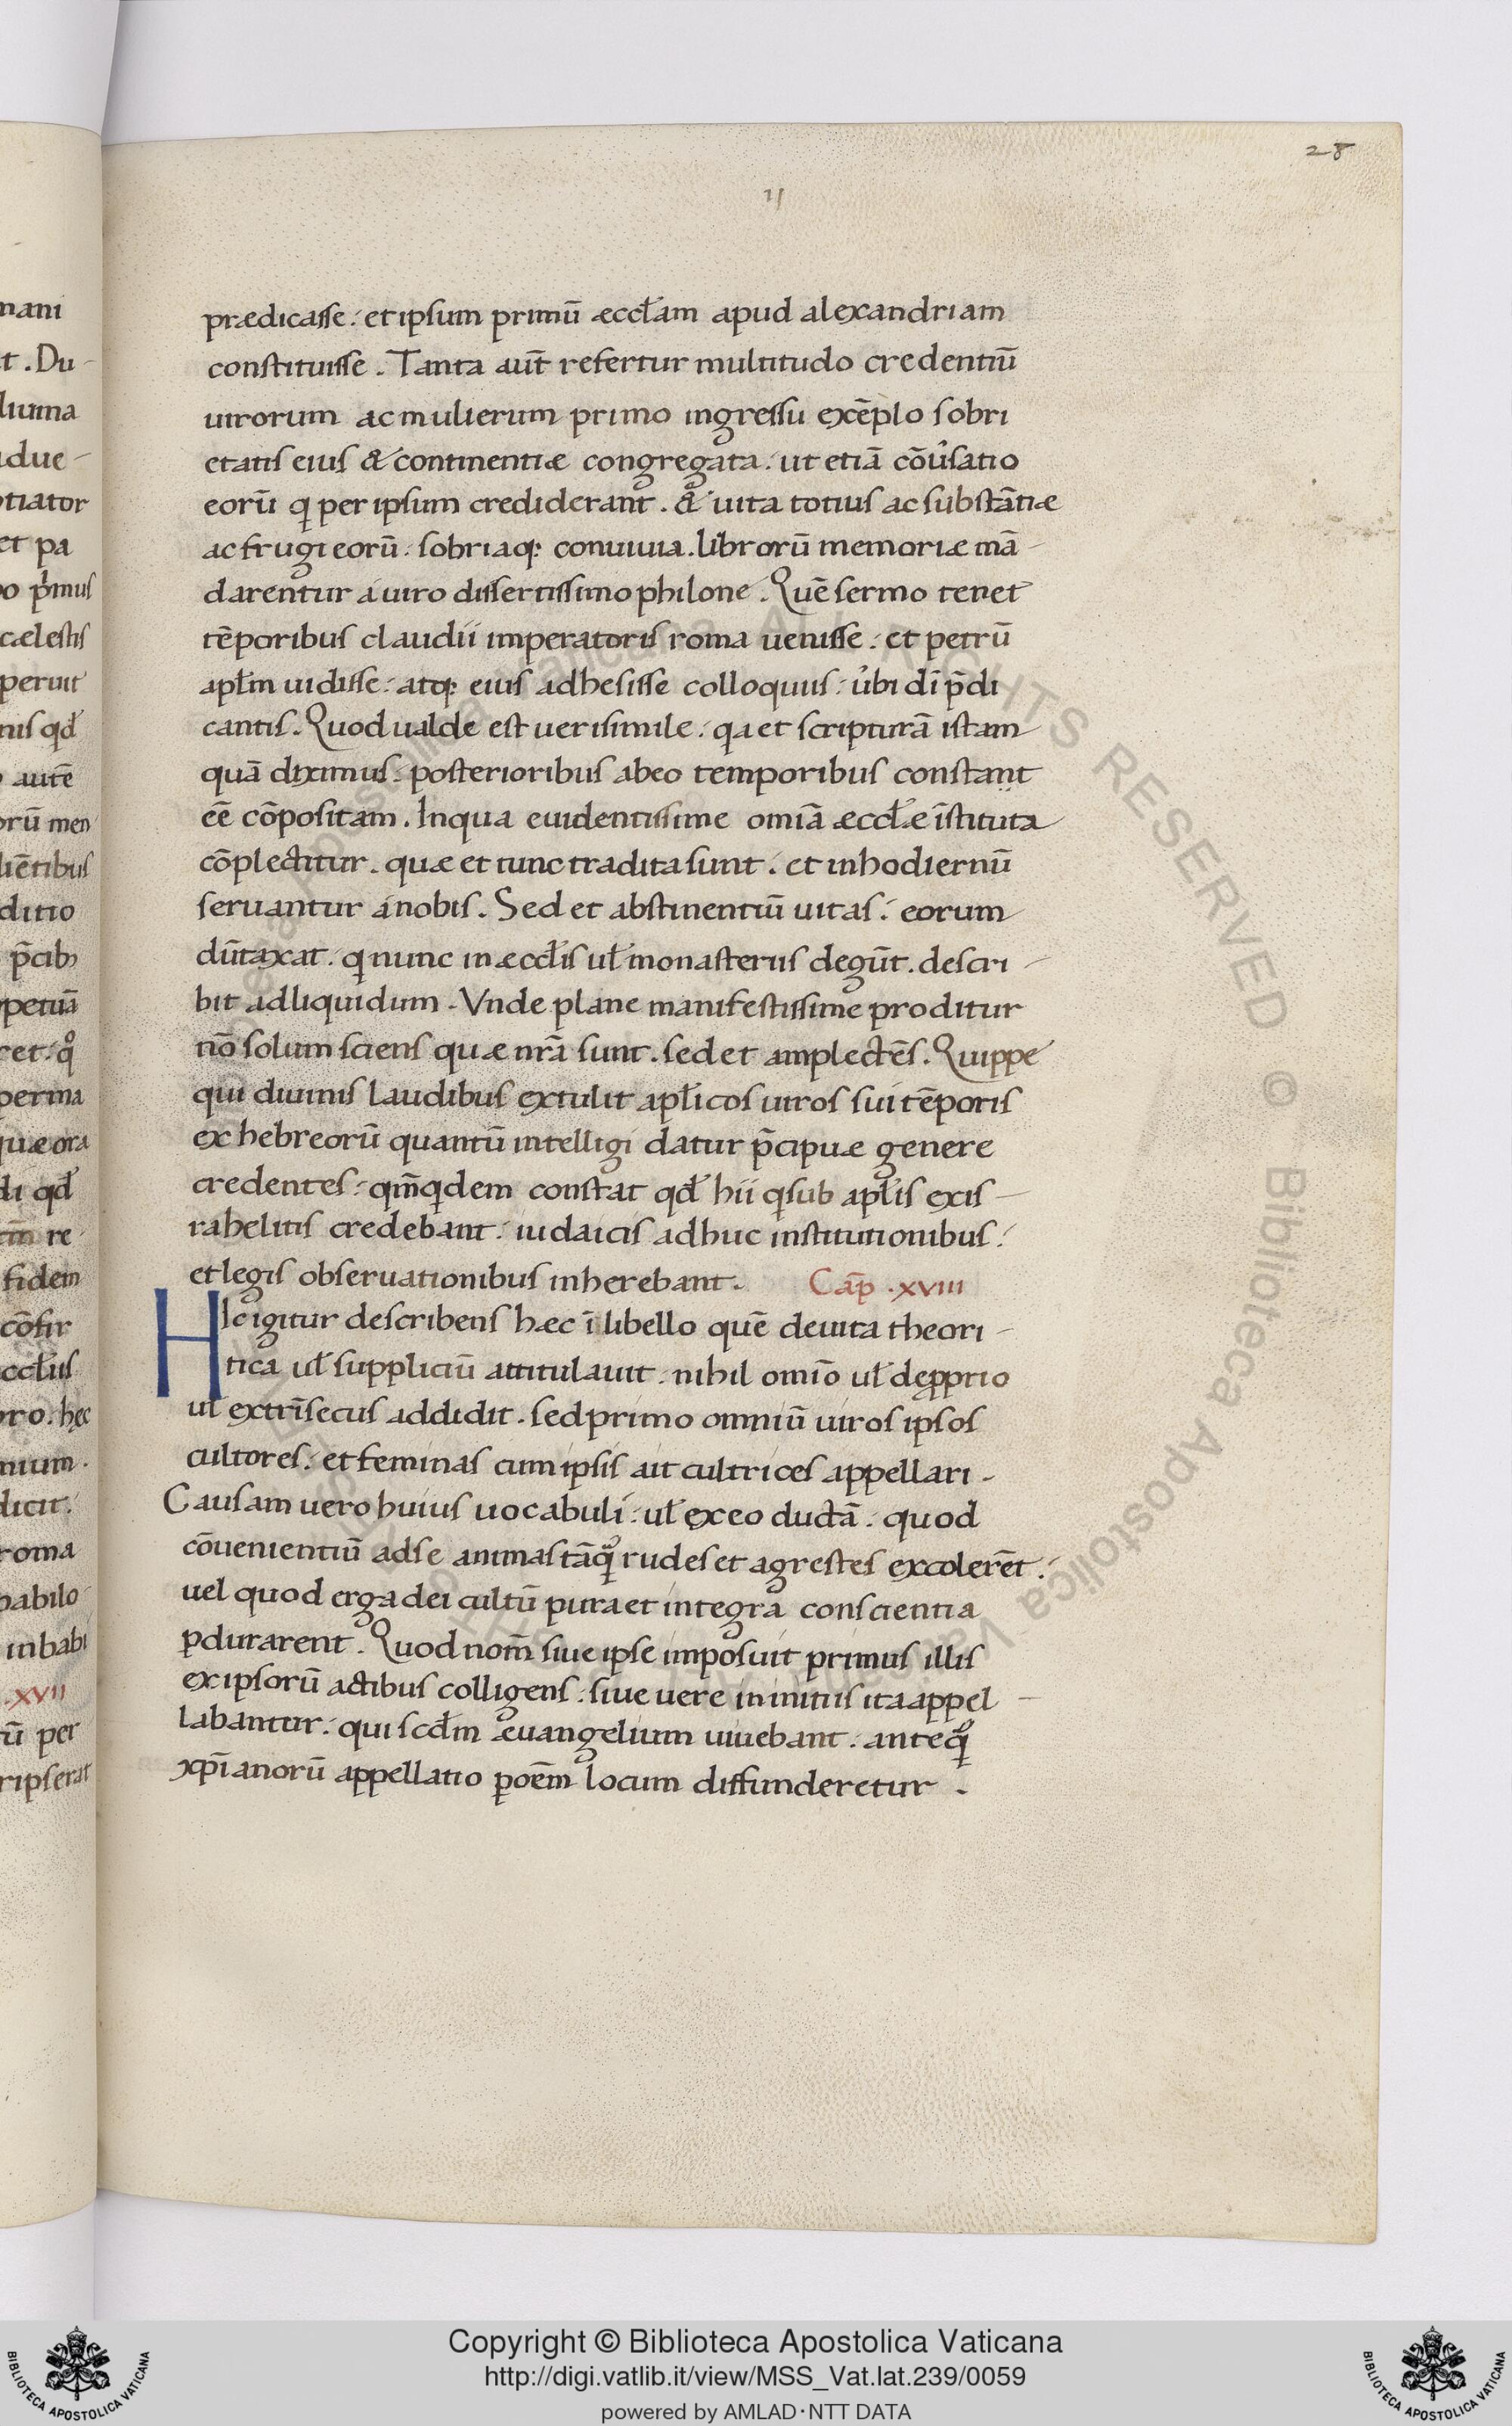 28
11
prædicasse: et ipsum primū æccłam apud alexandriam
constituisse. Tanta aut̄ refertur multitudo credentiū
uirorum ac mulierum primo ingressu exēplo sobri
etatis eius & continentiæ congregata: ut etiā cōu̓satio
eorū q̇ per ipsum crediderant. & uita totius ac substātiæ
ac frugi eorū: sobriaq; conuiuia. librorū memoriæ mā-
darentur a uiro dissertissimo philone. Quē sermo tenet
tēporibus claudii imperatoris roma uenisse: et petrū
apłm uidisse: atq; eius adhesisse colloquiis: u̓bi dī p̄di
cantis. Quod ualde est uerisimile: qa et scripturā istam
quā diximus: posterioribus ab eo temporibus constant
eē cōpositam. Inqua euidentissime omīa æccłæ īstituta
cōplectitur. quæ et tunc tradita sunt: et in hodiernū
seruantur a nobis. Sed et abstinentiū uitas: eorum
dūtaxat: q nunc in æccłis uł monasteriis degūt. descri-
bit ad liquidum. Vnde plane manifestissime proditur
nō solum sciens quæ nr̄a sunt. sed et amplectēs. Quippe
qui diuinis laudibus extulit apłicos uiros sui tēporis
ex hebreorū quantū intelligi datur p̄cipuæ genere
credentes: qm̄qdem constat qđ hii q sub apłis ex is-
rahelitis credebant: iudaicis adhuc institutionibus:
et legis obseruationibus inherebant. Cap̄ .xviii
HIc igitur describens hæc ī libello quē de uita theori-
tica uł suppliciū attitulauit: nihil omīo uł de ꝓprio
uł extrīsecus addidit. sed primo omniū uiros ipsos
cultores: et feminas cum ipsis ait cultrices appellari.
Causam uero huius uocabuli: uł ex eo ductā: quod
cōuenientiū ad se animas tāq̊ rudes et agrestes excolerēt:
uel quod erga dei cultū pura et integra conscientia
ꝑdurarent. Quod nom̄ siue ipse imposuit primus illis
ex ipsorū actibus colligens: siue uere in initiis ita appel-
labantur: qui scđm æuangelium uiuebant: anteq̊
xp̄ianorū appellatio ꝑ oēm locum diffunderetur.
Copyright © Biblioteca Apostolica Vaticana
http://digi.vatlib.it/view/MSS_Vat.lat.239/0059
powered by AMLAD·NTT DATA